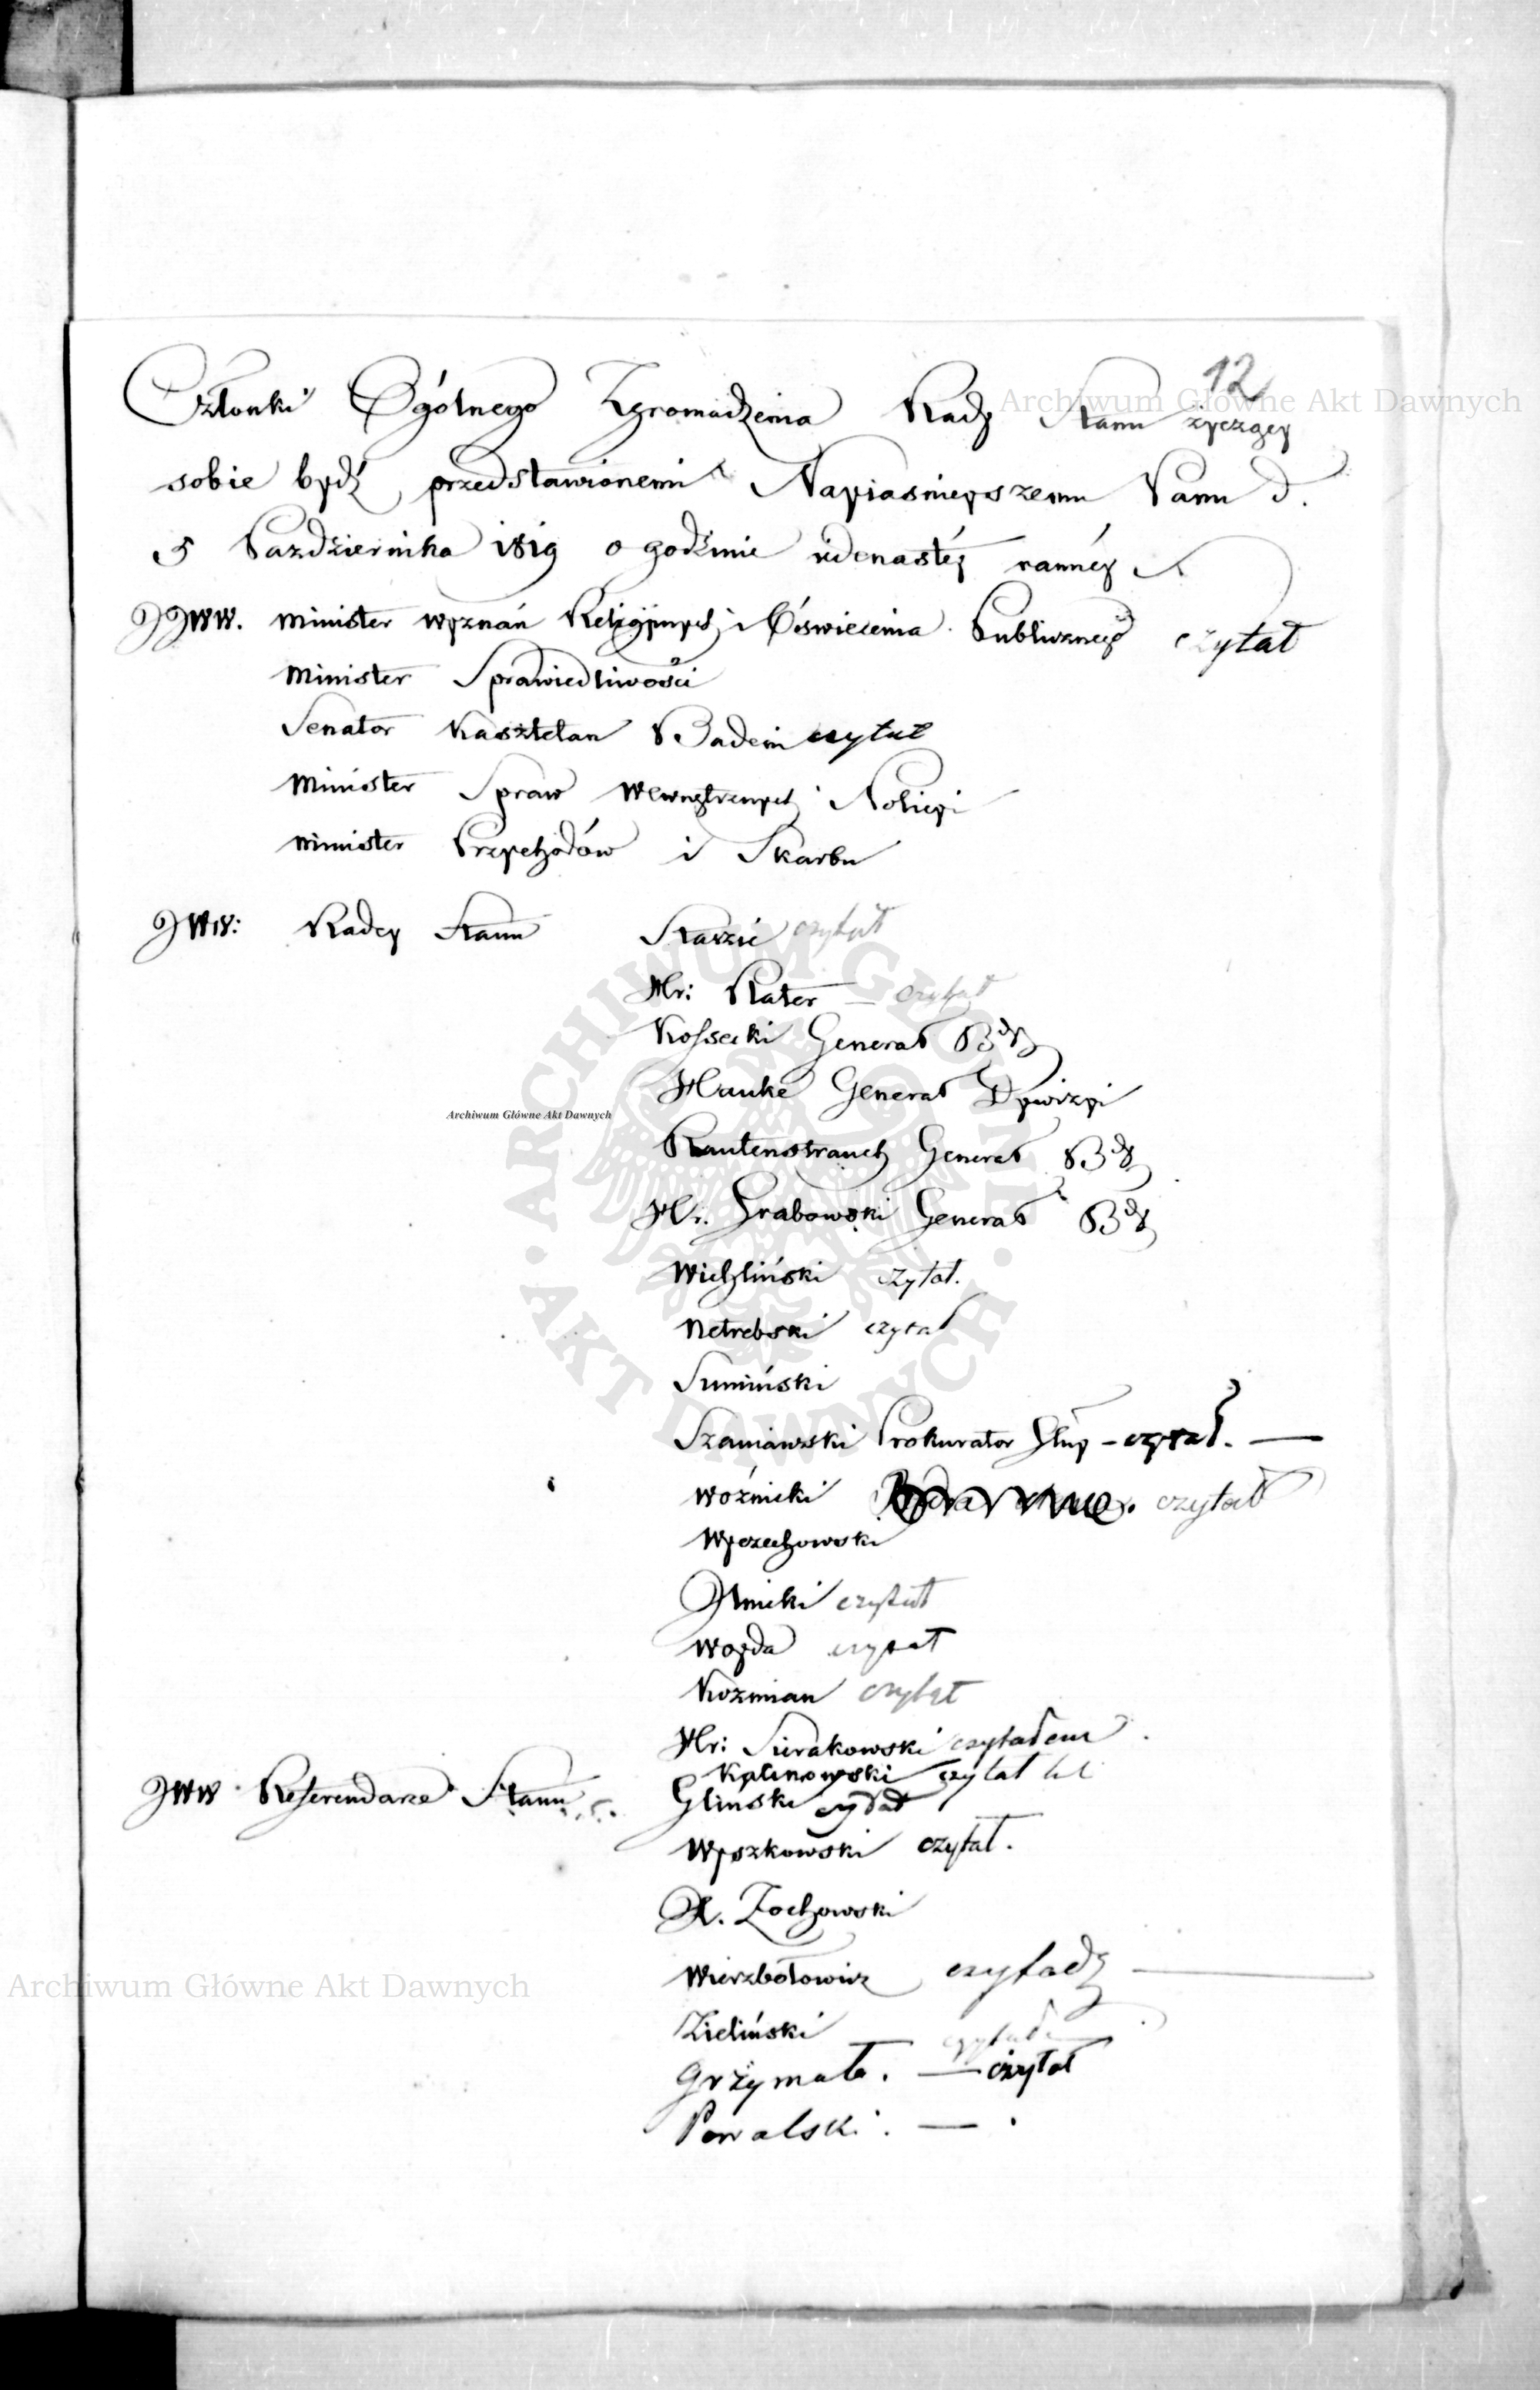 12
Członki Ogólnego Zgromadzenia Rady Stanu życzący
sobie bydź przedstawionemi Nayiaśnieyszemu Panu d.
5 Pazdziernika 1819 o godzinie iedenastéy rannéy
JJWW. Minister Wyznań Religiynych i Oświecenia Publicznego czytał
Minister Sprawiedliwości
Senator Kasztelan Badeni czytał
Minister Spraw Wewnętrznych i Policyi
Minister Przychodów i Skarbu
JWW: Radcy Stanu Staszic czytał
Hr: Plater – czytał
Kossecki Generał Bdy
Hauke Generał Dywizyi
Rautenstrauch Generał Bdy
Hr. Grabowski Generał Bdy
Wichliński czytał.
Netrebski czytał
Sumiński
Szaniawski Prokurator Głny – czytał. —
Woźnicki czytał
Wyczechowski
Linicki czytał
Woyda czytał
Kozmian czytał
Hr: Sierakowski czytałem
Kalinowski czytał
JWW Referendarze Stanu Gliński czytał
Wyszkowski czytał.
X. Żochowski
Wierzbołowicz czytał —
Zieliński czytał
Grzymała. — czytał
Powalski. — .
Archiwum Główne Akt Dawnych
Archiwum Główne Akt Dawnych
Archiwum Główne Akt Dawnych
ARCHIWUM GŁÓWNE · AKT DAWNYCH ·